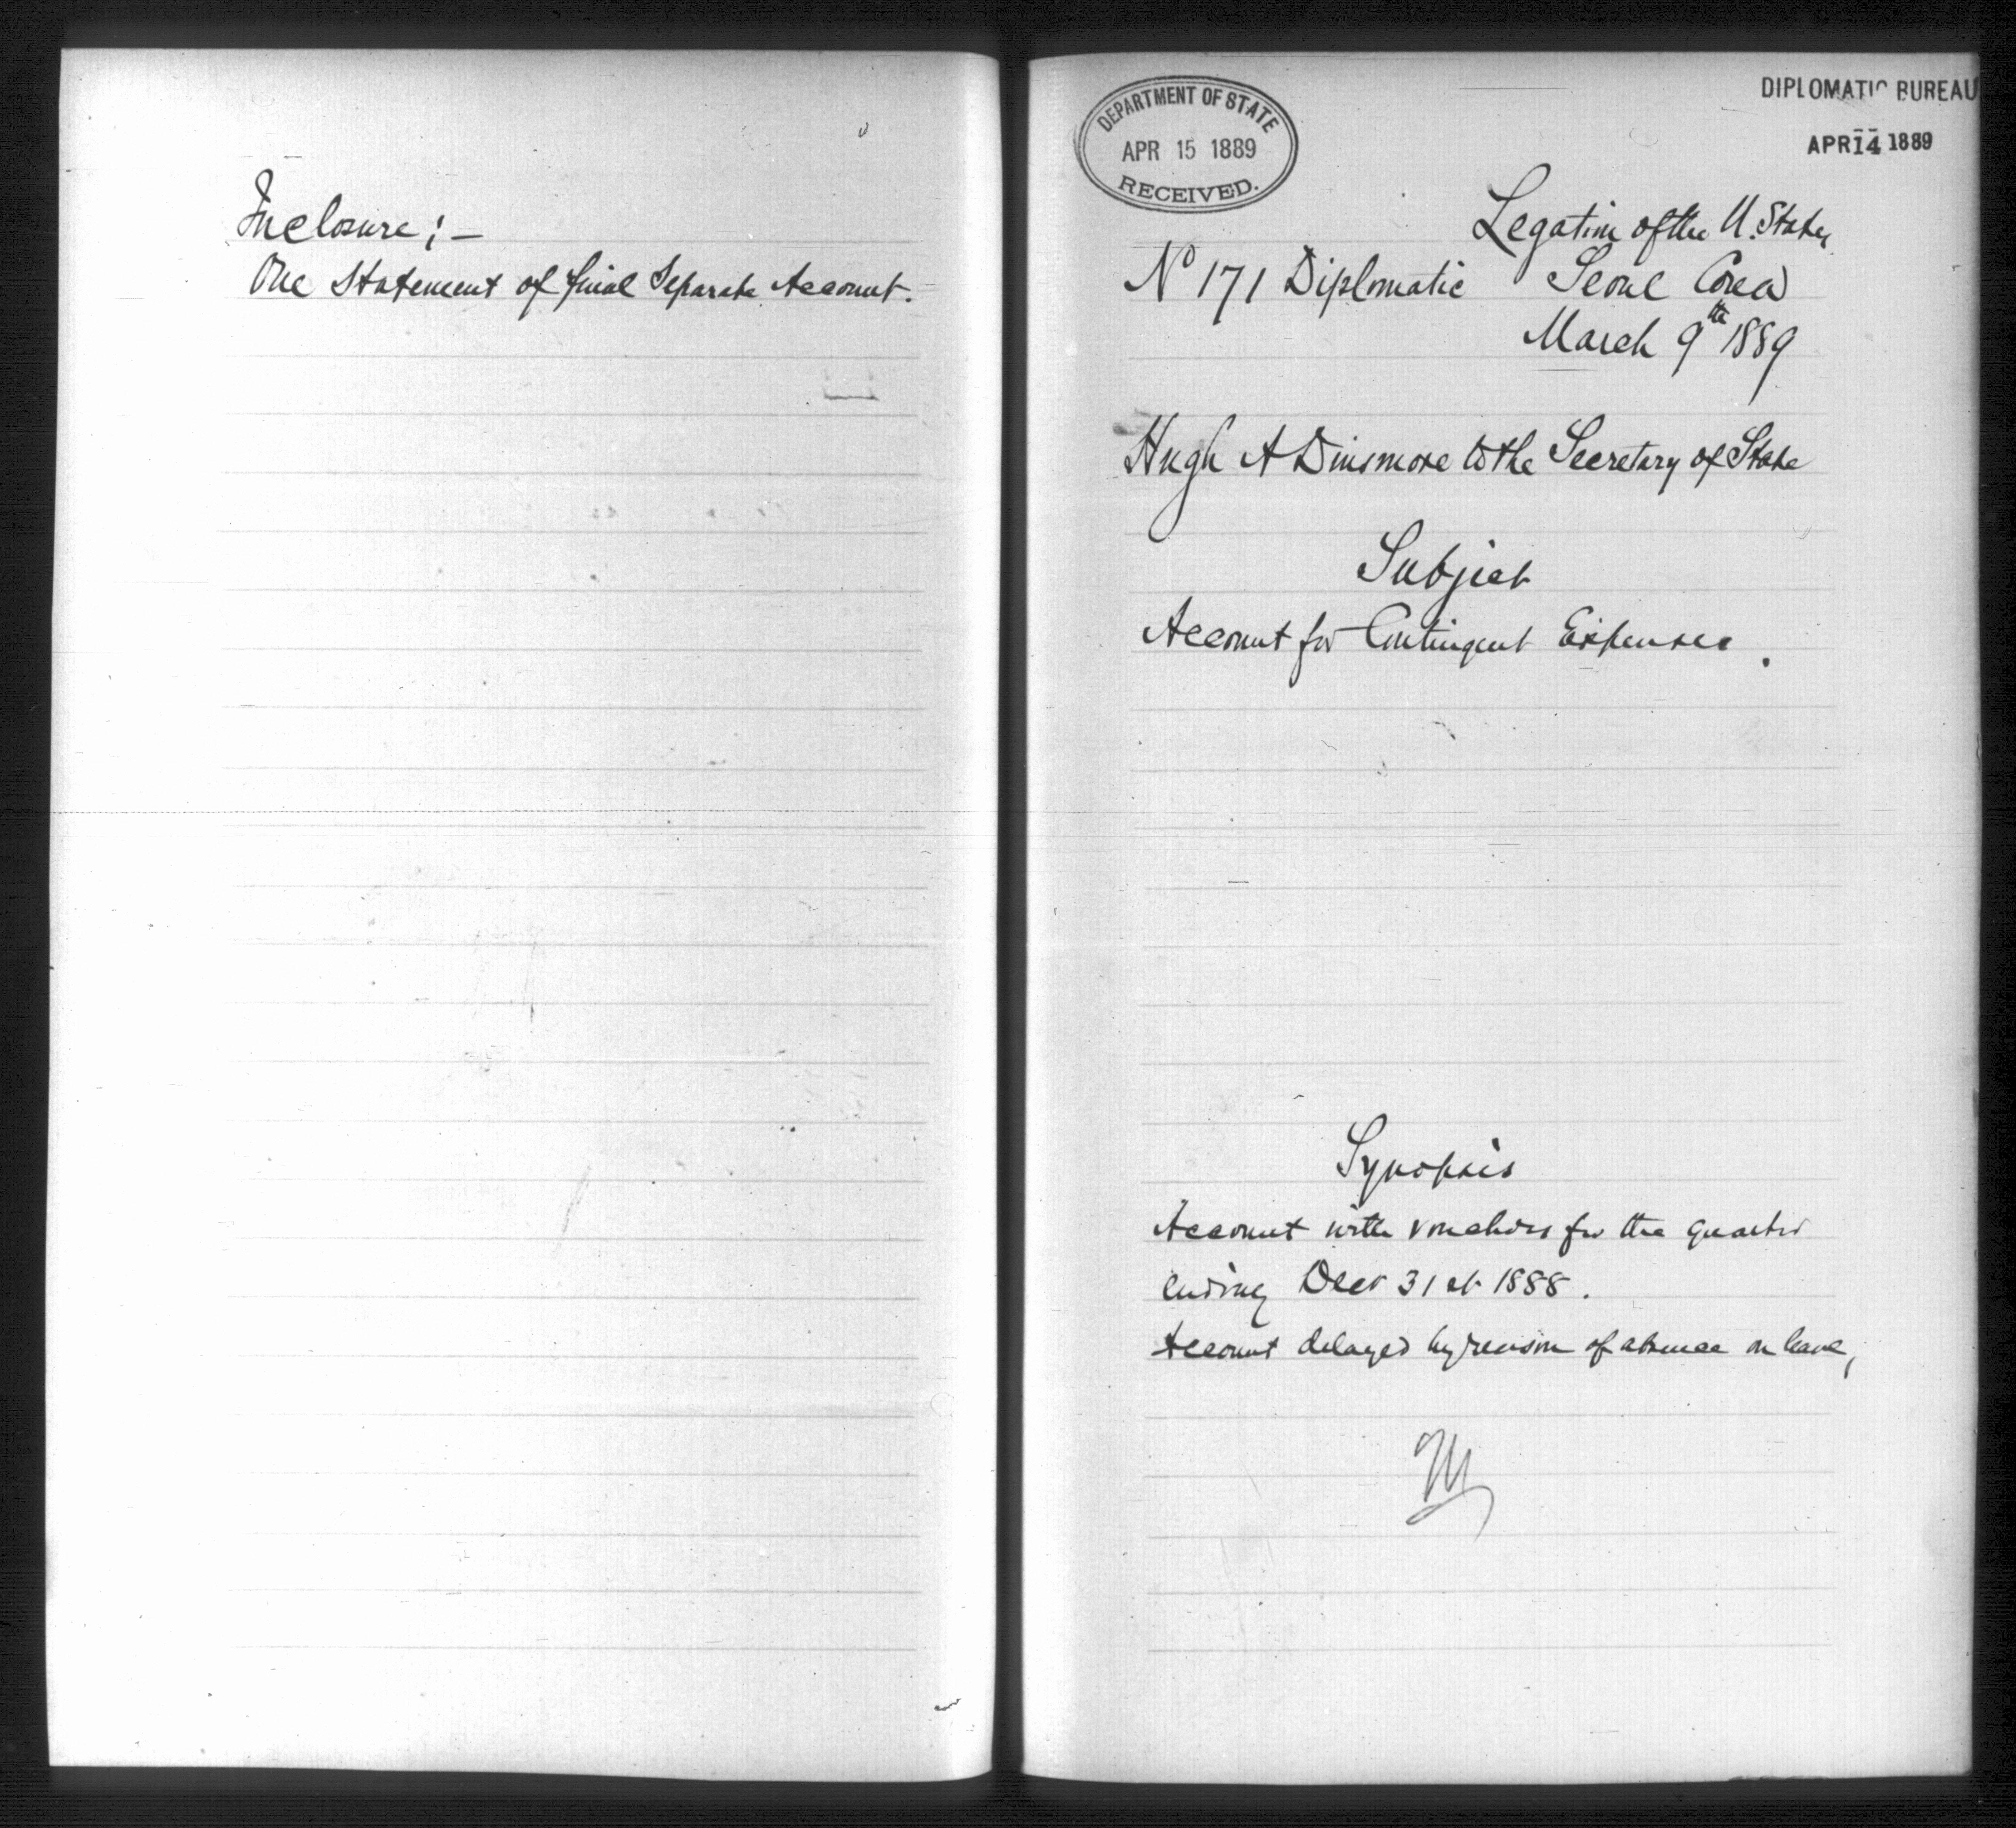 Inclosure; —
One Statement of final Separate Account.
DEPARTMENT OF STATE
APR 15 1889
RECEIVED.
DIPLOMATIC BUREAU
APR 14 1889
Legation of the U. States
Nº 171 Diplomatic Seoul Corea
March 9th 1889
Hugh A Dinsmore to the Secretary of State
Subject
Account for Contingent Expenses.
Synopsis
Account with vouchers for the quarter
ending Decr 31st 1888.
Account delayed by reason of absence on leave,